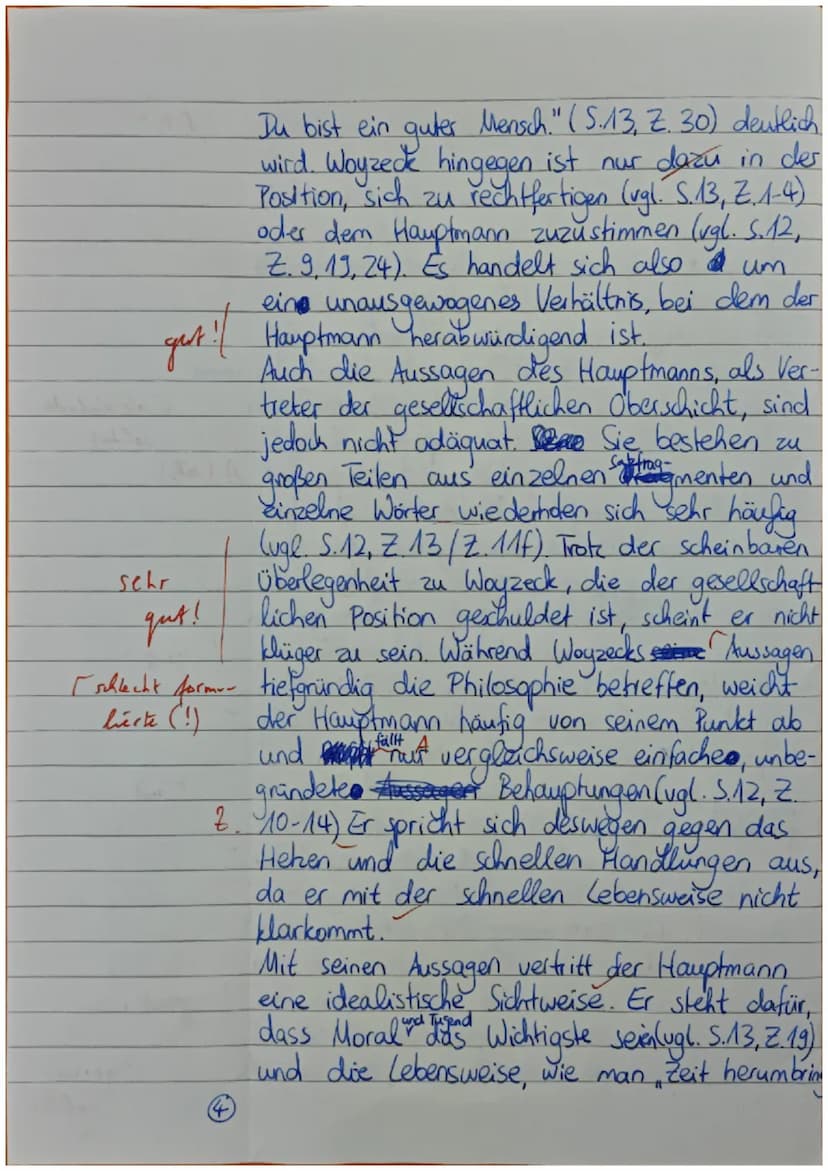 Du bist ein guter Mensch." (S.13, Z. 30) deutlich
wird. Woyzeck hingegen ist nur dazu in der
Position, sich zu rechtfertigen (vgl. S.13, Z.1-4)
oder dem Hauptmann zuzustimmen (vgl. S.12,
Z. 9, 19, 24). Es handelt sich also um
ein unausgewogenes Verhältnis, bei dem der
gut! Hauptmann herabwürdigend ist.
Auch die Aussagen des Hauptmanns, als Ver-
treter der gesellschaftlichen Oberschicht, sind
jedoch nicht adäquat. Sie bestehen zu
großen Teilen aus einzelnen Satzfragmenten und
einzelne Wörter wiederhden sich sehr häufig
(vgl. S.12, Z.13 / Z.11f). Trotz der scheinbaren
sehr Überlegenheit zu Woyzeck, die der gesellschaft-
gut! lichen Position geschuldet ist, scheint er nicht
klüger zu sein. Während Woyzecks Aussagen
schlecht formu- tiefgründig die Philosophie betreffen, weicht
lierte (!) der Hauptmann häufig von seinem Punkt ab
und fällt nur A vergleichsweise einfache, unbe-
gründete Behauptungen (vgl. S.12, Z.
Z. 10-14) Er spricht sich deswegen gegen das
Hetzen und die schnellen Handlungen aus,
da er mit der schnellen Lebensweise nicht
klarkommt.
Mit seinen Aussagen vertritt der Hauptmann
eine idealistische Sichtweise. Er steht dafür,
dass Moral und Tugend das Wichtigste seien (vgl. S.13, Z.19)
und die Lebensweise, wie man "Zeit herumbring
4